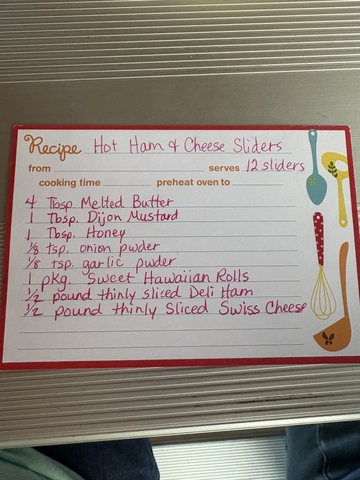 Recipe Hot Ham & Cheese Sliders
from serves 12 sliders
cooking time preheat oven to
4 Tbsp. Melted Butter
1 Tbsp. Dijon Mustard
1 Tbsp. Honey
1/8 tsp. onion pwder
1/8 tsp. garlic pwder
1 pkg. Sweet Hawaiian Rolls
1/2 pound thinly sliced Deli Ham
1/2 pound thinly Sliced Swiss Cheese